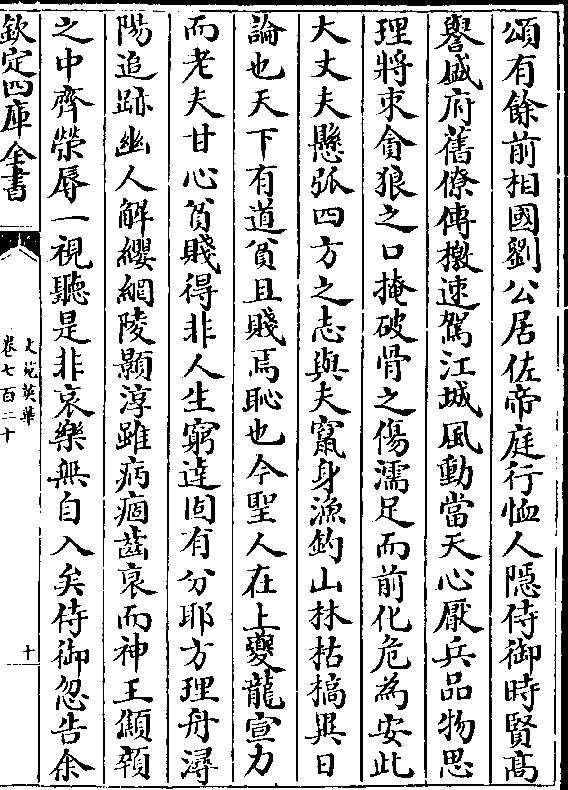 頌有餘前相國劉公居佐帝庭行恤人隱侍御時賢高
譽盛府舊僚傳檄速駕江城風動當天心厭兵品物思
理將束貪狼之口掩破骨之傷濡足而前化危為安此
大丈夫懸弧四方之志與夫竄身漁釣山林枯槁異日
論也天下有道貧且賤焉恥也今聖人在上夔龍宣力
而老夫甘心貧賤得非人生窮達固有分耶方理舟潯
陽追跡幽人解纓絪陵顥淳雖病痼齒衰而神王顑頷
之中齊榮辱一視聽是非哀樂無自入矣侍御忽告余
欽定四庫全書
文苑英華
卷七百二十
十